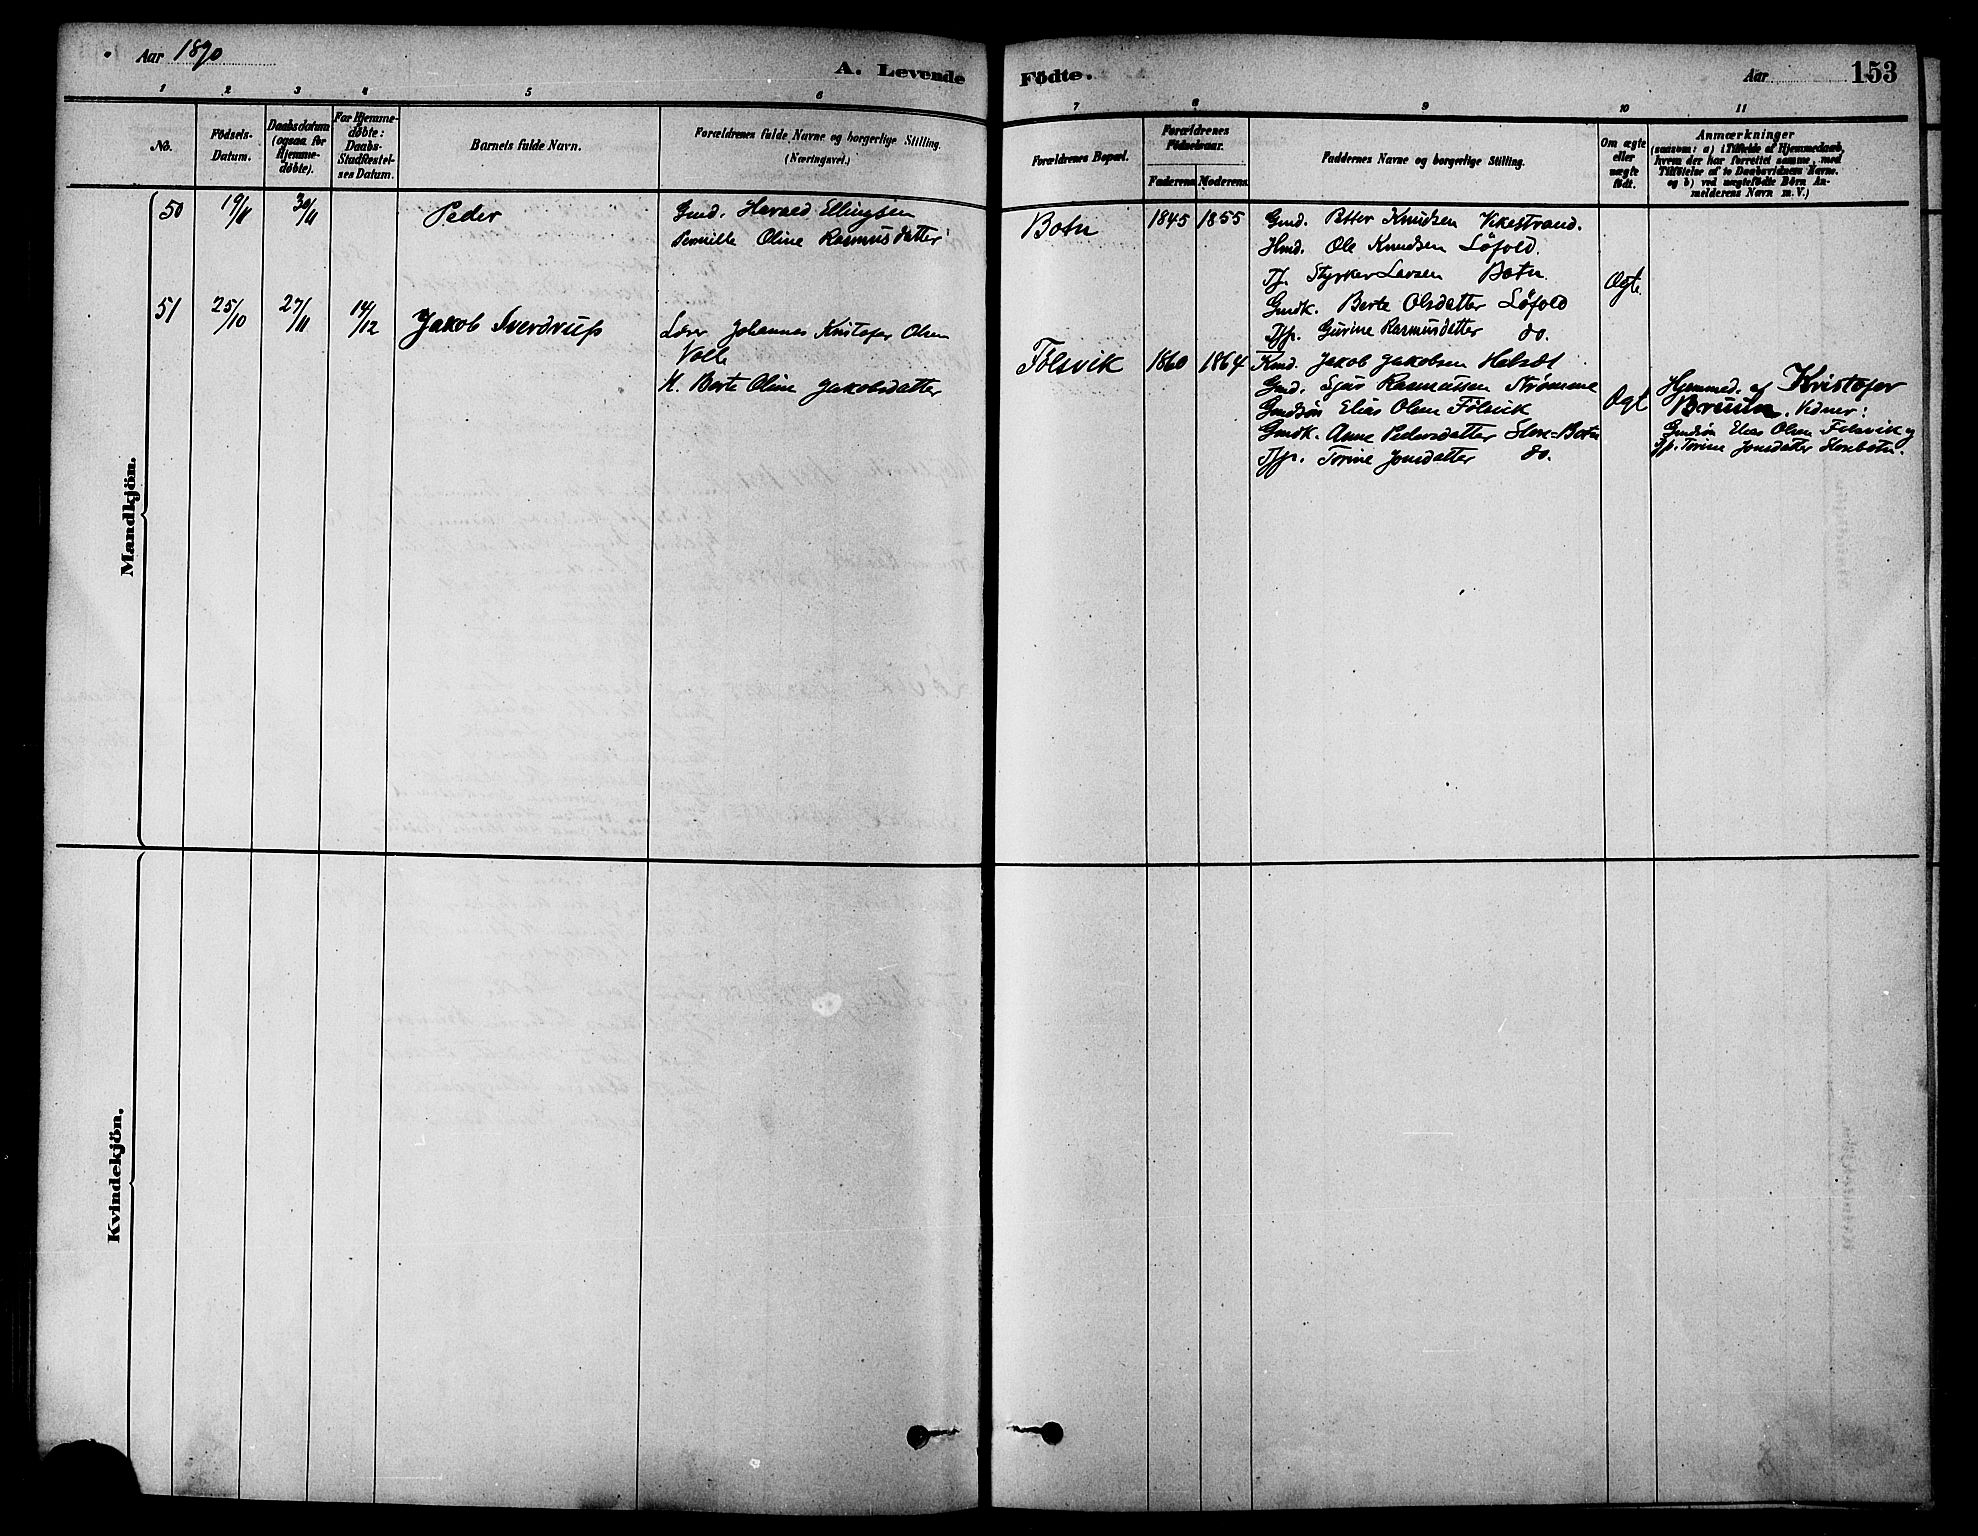 Aar 1890
A. Levende Födte.
Aar 153
1 2 3 4 5 6 7 8 9 10 11
No.
Födsels-
Datum.
Daabsdatum
(ogsaa for
Hjemme-
døbte).
For Hjemme-
døbte:
Daabs-
Stadfæstel-
ses Datum.
Barnets fulde Navn.
Forældrenes fulde Navne og borgerlige Stilling.
(Næringsvei.)
Forældrenes Bopæl.
Forældrenes
Födselsaar.
Faderens Moderens
Faddernes Navne og borgerlige Stilling.
Om ægte
eller
uægte
født.
Anmærkninger
(saasom: a) i Tilfælde af Hjemmedaab,
hvem der har forrettet samme, med
Tilföielse af to Daabsvidners Navne,
og b) ved uægtefödte Börn An-
melderens Navn m. V.)
Mandkjön.
50 19/11 30/11 Peder
Gmd. Harald Ellingsen
Pernille Oline Rasmusdatter
Botn 1845 1855
Gmd. Petter Knudsen Vikestrand.
Hmd. Ole Knudsen Løfold.
Tj. Styrker Larsen Botn.
Gmdk. Berte Olsdatter Løfold
Tjp. Gurine Rasmusdatter do.
Ægte
51 25/10 27/11 14/12 Jakob Sverdrup
Lærer Johannes Kristofer Olsen
Volle
H. Berte Oline Jakobsdatter
Følsvik 1860 1864
Kmd. Jakob Jakobsen Helsæt
Gmd. Sjur Rasmussen Strømme
Gmdsøn Elias Olsen Følsvik
Gmdk. Anne Pedersdatter Store-Botn
Tjp. Torine Jonsdatter do.
Ægt
Hjemmed. af Kristofer
Bruun. Vidner:
Gmdsøn Elias Olsen Følsvik og
Tjp. Torine Jonsdatter Storebotn.
Kvindekjön.